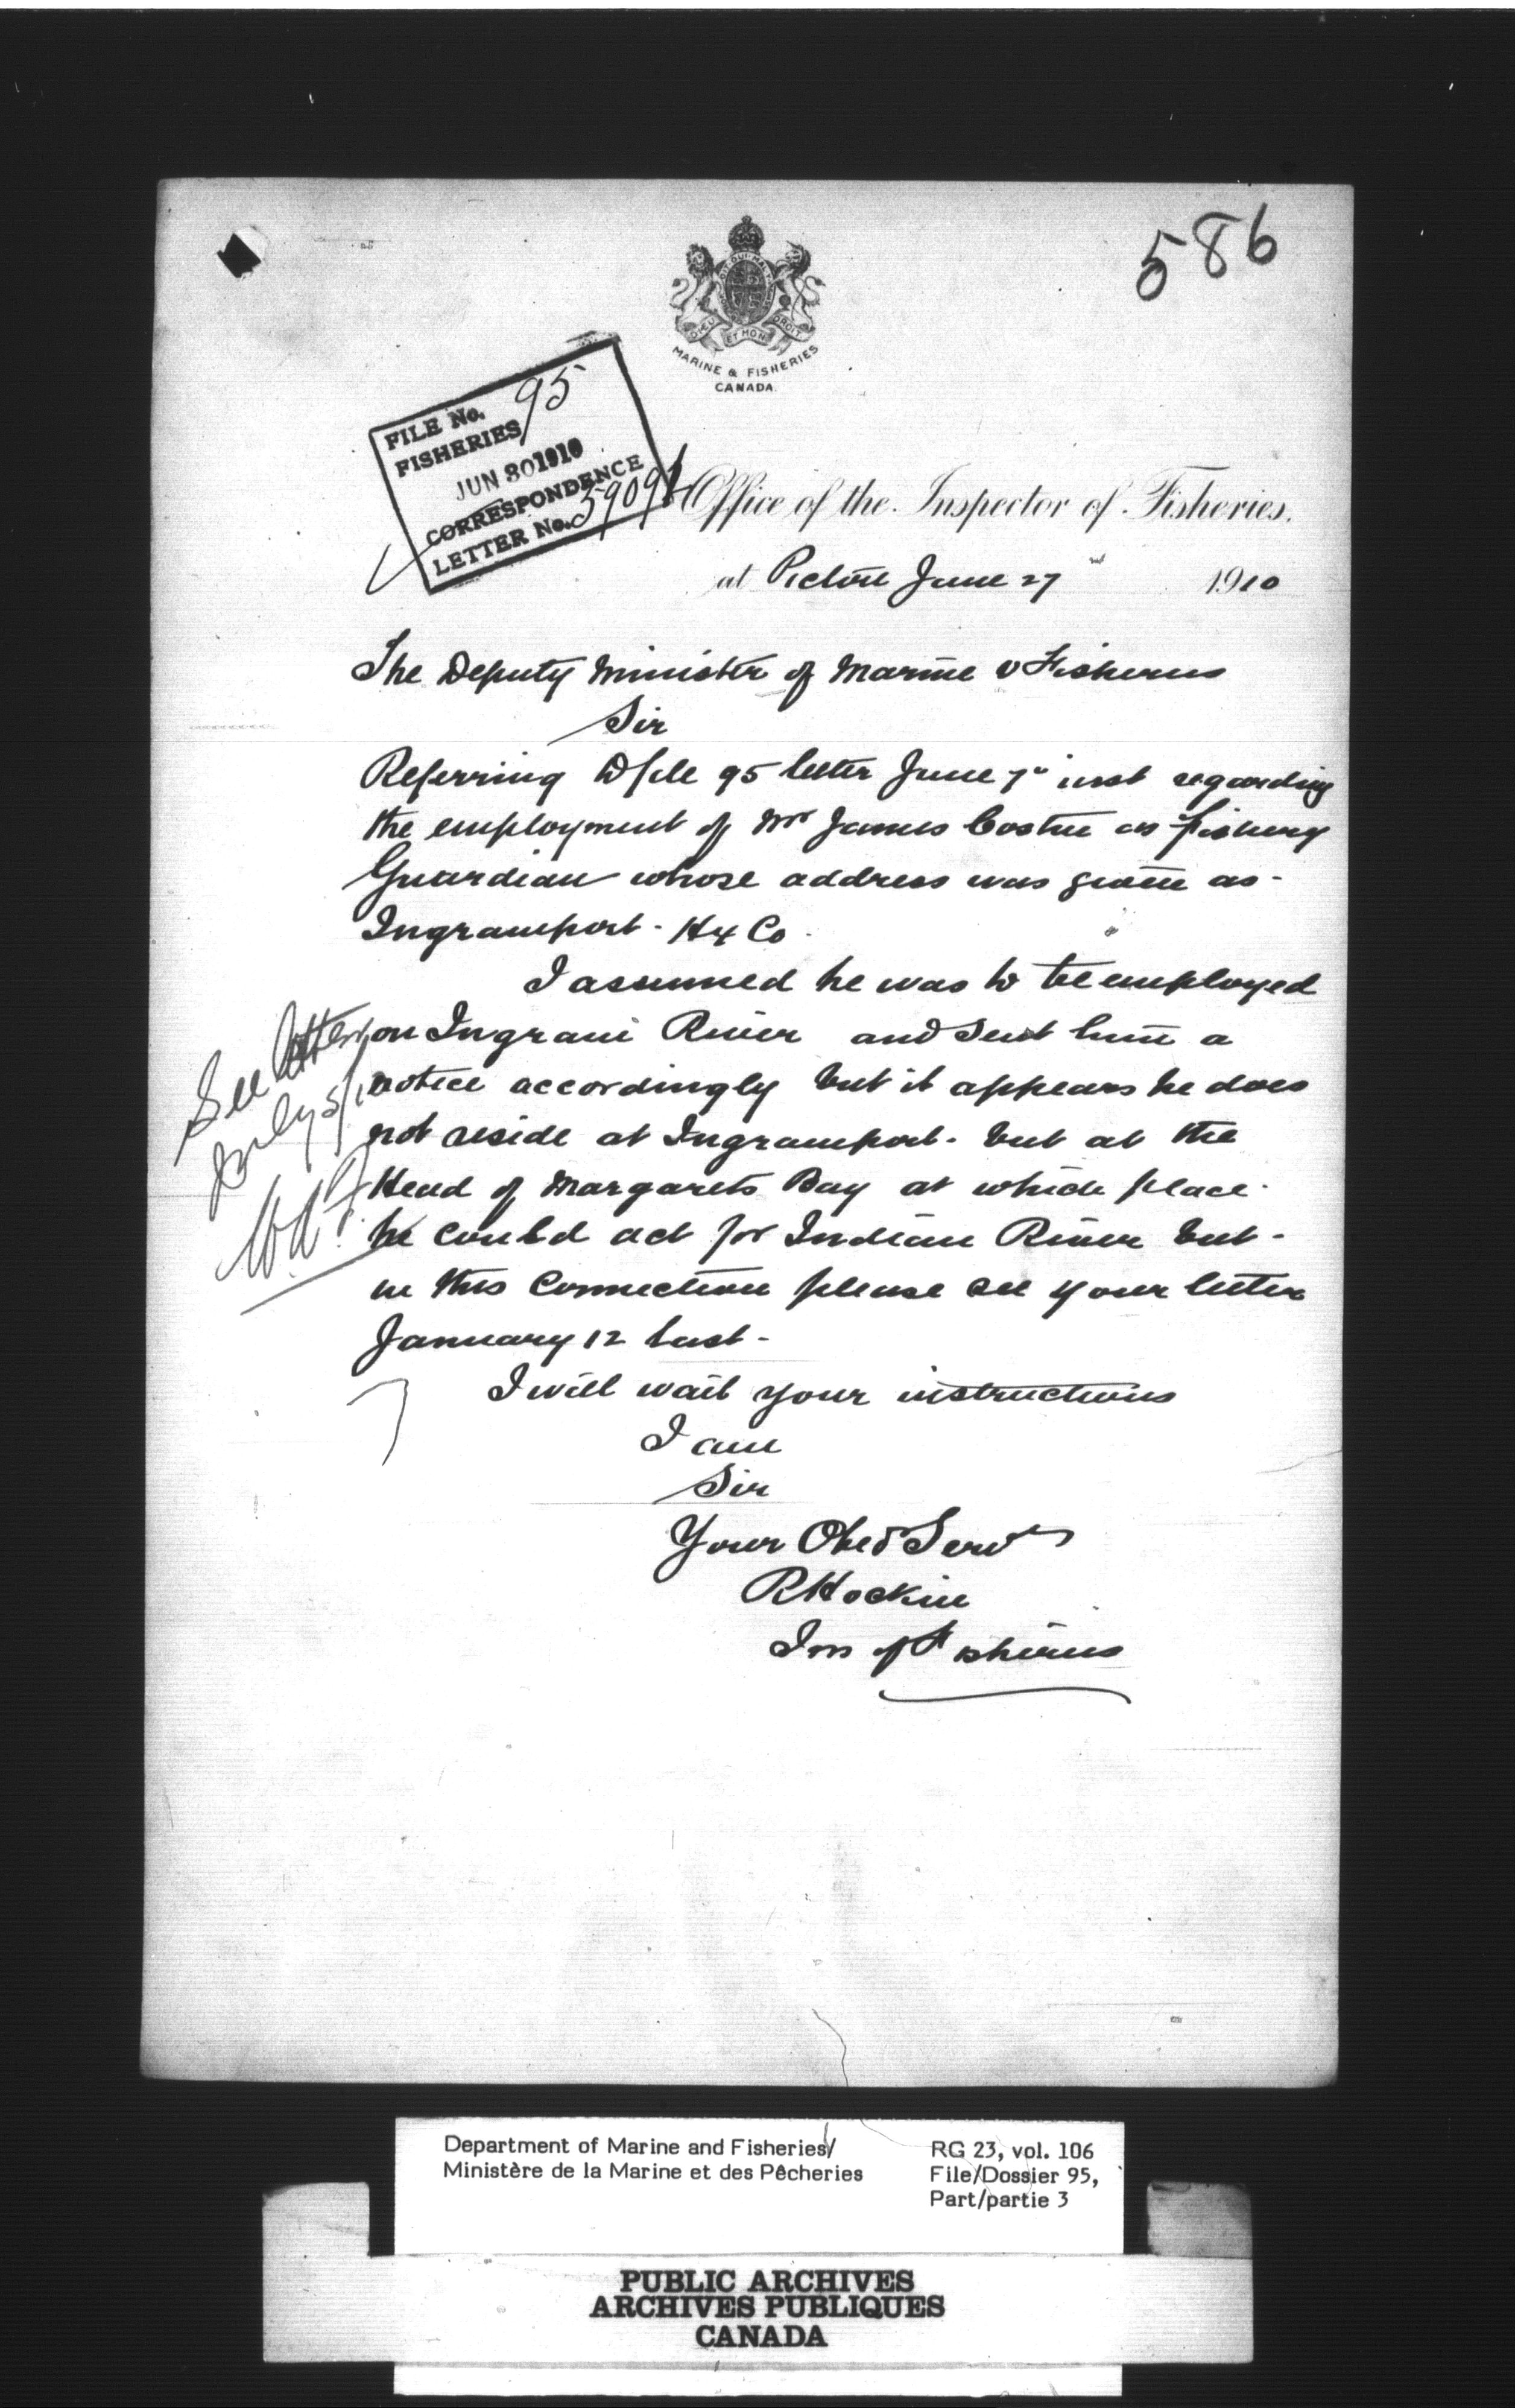 586
DIEU ET MON DROIT
MARINE & FISHERIES
CANADA.
FILE No. 95
FISHERIES
JUN 30 1910
CORRESPONDENCE
LETTER No. 59091
Office of the Inspector of Fisheries.
at Pictou June 27 1910
The Deputy Minister of Marine & Fisheries
Sir
Referring to file 95 letter June 7" inst regarding
the employment of Mr James Coster as fishery
Guardian whose address was given as -
Ingramport - Hx Co.
I assumed he was to be employed
on Ingram River and sent him a
notice accordingly but it appears he does
not reside at Ingramport - but at the
Head of Margarets Bay at which place
he could act for Indian River but -
in this Connection please see your letter
January 12 last -
I will wait your instructions
I am
Sir
Your Obed Servt
R Hockin
Ins of Fisheries
See letter
July 5/10
Department of Marine and Fisheries/
Ministère de la Marine et des Pêcheries
RG 23, vol. 106
File/Dossier 95,
Part/partie 3
PUBLIC ARCHIVES
ARCHIVES PUBLIQUES
CANADA